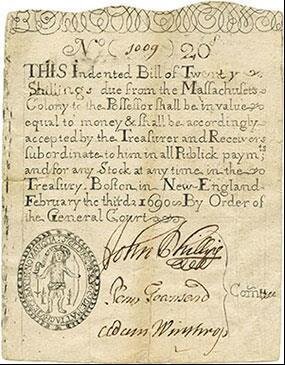 No ( 5009 ) 20s
THIS Indented Bill of Twenty
Shillings due from the Massachusets
Colony to the Possessor shall be in value
equal to money & shall be accordingly
accepted by the Treasurer and Receivers
subordinate to him in all Publick paymts
and for any Stock at any time in the
Treasury. Boston in New-England
February the third 1690 By Order of
the General Court
John Phillips
Penn Townsend
Adam Winthrop
Comttee